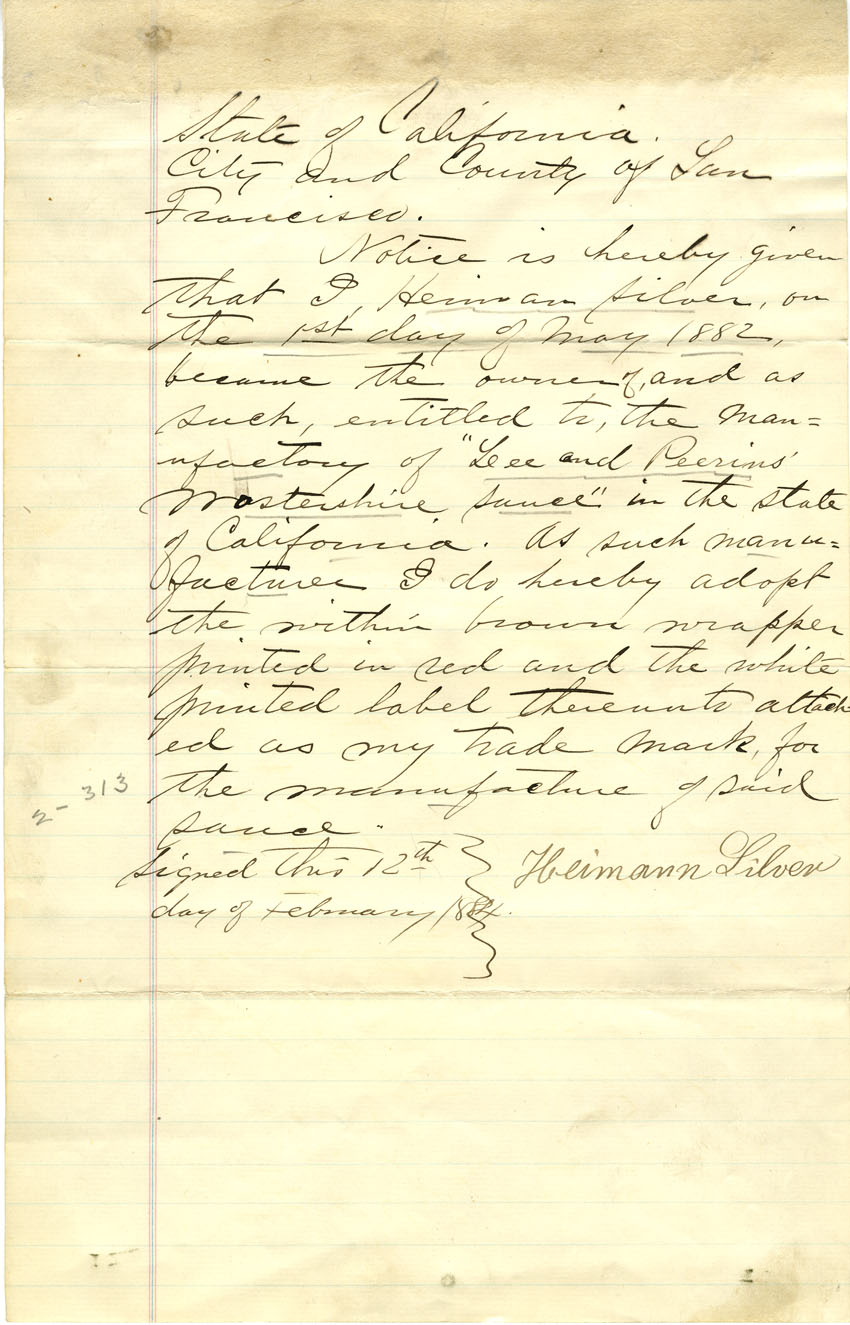 State of California.
City and County of San
Francisco.
Notice is hereby given
that I, Heiman Silver, on
the 1st day of May 1882,
became the owner of, and as
such, entitled to, the Man=
ufactory of "Lee and Peerins'
Wostershire sauce" in the state
of California. As such manu=
facturer I do hereby adopt
the within brown wrapper
printed in red and the white
printed label thereunto attach
ed as my trade mark, for
the manufacture of said
sauce.
Signed this 12th
day of February 1884.
Heimann Silver
2-313